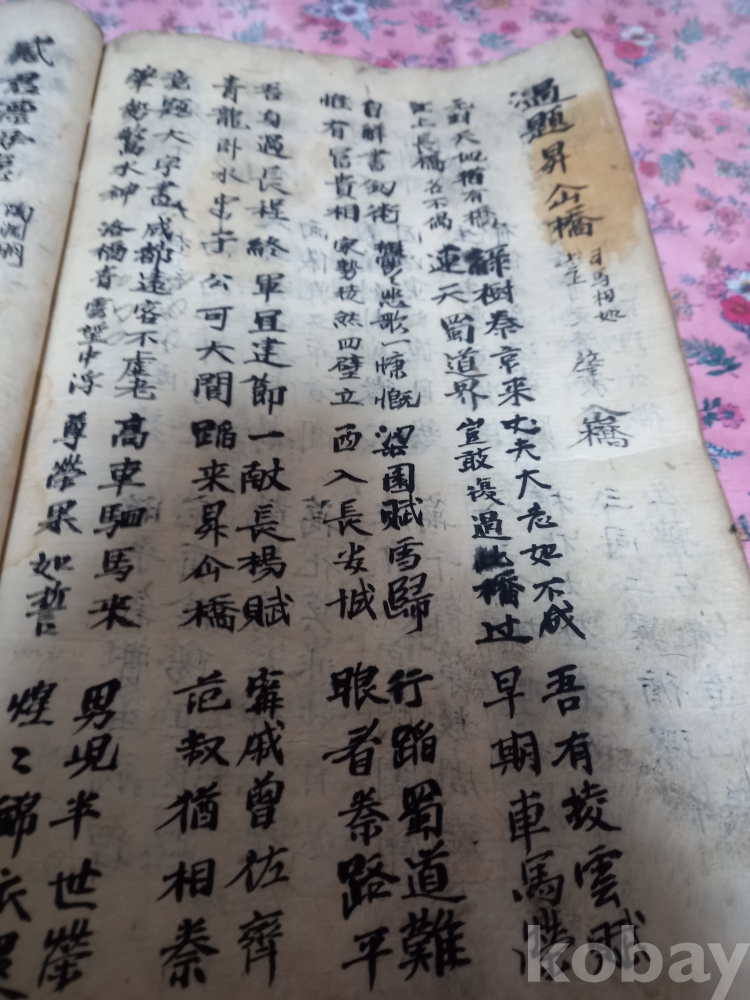 過題昇仚橋 司馬相如
天地橋有橋 綠樹秦京來 丈夫大志如不成 吾有凌雲賦
江上長橋名不偶 連天蜀道界 豈敢復過此橋过 早期車馬浩
自解書釰術 鬱〻悲歌一慷慨 梁園賦雪歸 行蹈蜀道難
惟有富貴相 家勢徒然四壁立 西入長安城 眼看秦路平
吾句過長程 終軍宜建節 一献長楊賦 寗戚曾佐齊
青龍卧水宮 于公可大閭 蹈来昇仚橋 范叔猶相秦
意題大字畫 成都遠客不虛老 高車駟馬来 男児半世榮
筆勢驚水神 洛橋青雲望中浮 尊榮果如誓 煌〻錦衣
陶淵明
kobay